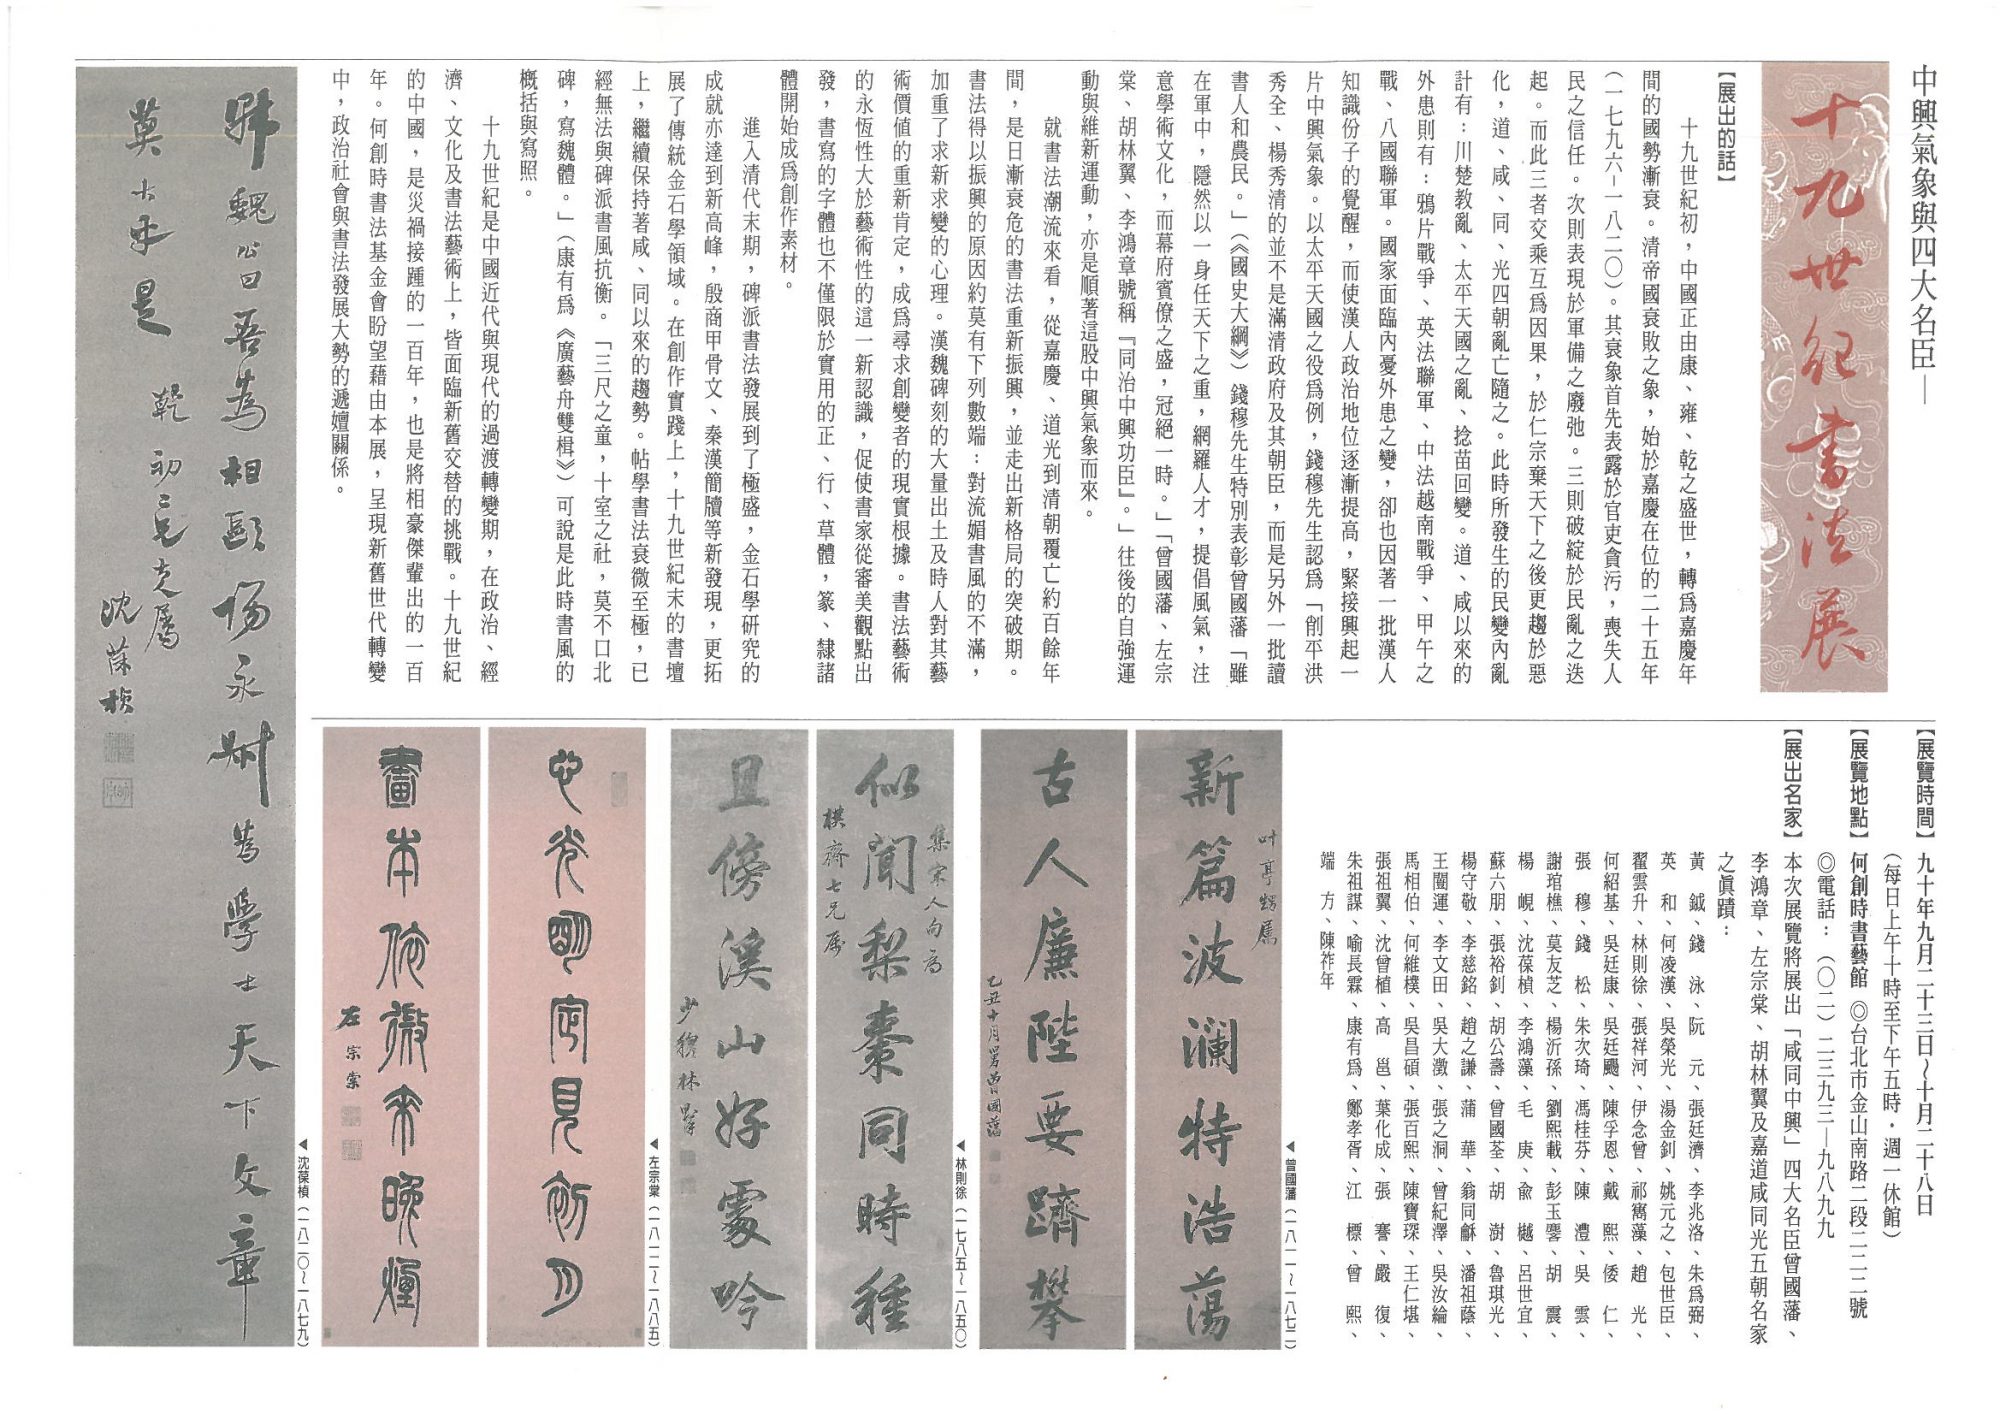 中興氣象與四大名臣—
十九世紀書法展
【展出的話】
十九世紀初，中國正由康、雍、乾之盛世，轉爲嘉慶年
間的國勢漸衰。清帝國衰敗之象，始於嘉慶在位的二十五年
（一七九六－一八二〇）。其衰象首先表露於官吏貪污，喪失人
民之信任。次則表現於軍備之廢弛。三則破綻於民亂之迭
起。而此三者交乘互爲因果，於仁宗棄天下之後更趨於惡
化，道、咸、同、光四朝亂亡隨之。此時所發生的民變內亂
計有：川楚教亂、太平天國之亂、捻苗回變。道、咸以來的
外患則有：鴉片戰爭、英法聯軍、中法越南戰爭、甲午之
戰、八國聯軍。國家面臨內憂外患之變，卻也因著一批漢人
知識份子的覺醒，而使漢人政治地位逐漸提高，緊接興起一
片中興氣象。以太平天國之役爲例，錢穆先生認爲「創平洪
秀全、楊秀清的並不是滿清政府及其朝臣，而是另外一批讀
書人和農民。」（《國史大綱》）錢穆先生特別表彰曾國藩「雖
在軍中，隱然以一身任天下之重，網羅人才，提倡風氣，注
意學術文化，而幕府賓僚之盛，冠絕一時。」「曾國藩、左宗
棠、胡林翼、李鴻章號稱『同治中興功臣』。」往後的自強運
動與維新運動，亦是順著這股中興氣象而來。
就書法潮流來看，從嘉慶、道光到清朝覆亡約百餘年
間，是日漸衰危的書法重新振興，並走出新格局的突破期。
書法得以振興的原因約莫有下列數端：對流媚書風的不滿，
加重了求新求變的心理。漢魏碑刻的大量出土及時人對其藝
術價值的重新肯定，成爲尋求創變者的現實根據。書法藝術
的永恆性大於藝術性的這一新認識，促使書家從審美觀點出
發，書寫的字體也不僅限於實用的正、行、草體，篆、隸諸
體開始成爲創作素材。
進入清代末期，碑派書法發展到了極盛，金石學研究的
成就亦達到新高峰，殷商甲骨文、秦漢簡牘等新發現，更拓
展了傳統金石學領域。在創作實踐上，十九世紀末的書壇
上，繼續保持著咸、同以來的趨勢。帖學書法衰微至極，已
經無法與碑派書風抗衡。「三尺之童，十室之社，莫不口北
碑，寫魏體。」（康有爲《廣藝舟雙楫》）可說是此時書風的
概括與寫照。
十九世紀是中國近代與現代的過渡轉變期，在政治、經
濟、文化及書法藝術上，皆面臨新舊交替的挑戰。十九世紀
的中國，是災禍接踵的一百年，也是將相豪傑輩出的一百
年。何創時書法基金會盼望藉由本展，呈現新舊世代轉變
中，政治社會與書法發展大勢的遞嬗關係。
魏公曰吾爲相歐陽永叔爲學士天下文章
莫大乎是
乾初二兄大屬
沈葆楨
【展覽時間】九十年九月二十三日～十月二十八日
（每日上午十時至下午五時・週一休館）
【展覽地點】何創時書藝館 ◎台北市金山南路二段二二二號
◎電話：（〇二）二三九三—九八九九
【展出名家】本次展覽將展出「咸同中興」四大名臣曾國藩、
李鴻章、左宗棠、胡林翼及嘉道咸同光五朝名家
之眞蹟：
黃　鉞、錢　泳、阮　元、張廷濟、李兆洛、朱爲弼、
英　和、何凌漢、吳榮光、湯金釗、姚元之、包世臣、
翟雲升、林則徐、張祥河、伊念曾、祁寯藻、趙　光、
何紹基、吳廷康、吳廷颺、陳孚恩、戴　熙、倭　仁、
張　穆、錢　松、朱次琦、馮桂芬、陳　澧、吳　雲、
謝琯樵、莫友芝、楊沂孫、劉熙載、彭玉麐、胡　震、
楊　峴、沈葆楨、李鴻藻、毛　庚、俞　樾、呂世宜、
蘇六朋、張裕釗、胡公壽、曾國荃、胡　澍、魯琪光、
楊守敬、李慈銘、趙之謙、蒲　華、翁同龢、潘祖蔭、
王闓運、李文田、吳大澂、張之洞、曾紀澤、吳汝綸、
馬相伯、何維樸、吳昌碩、張百熙、陳寶琛、王仁堪、
張祖翼、沈曾植、高　邕、葉化成、張　謇、嚴　復、
朱祖謀、喻長霖、康有爲、鄭孝胥、江　標、曾　熙、
端　方、陳祚年
◀曾國藩（一八一一～一八七二）
叶亭甥屬
新篇波瀾特浩蕩
古人廉陛要躋攀
乙丑十月舅曾國藩
◀林則徐（一七八五～一八五〇）
集宋人句爲
似聞梨棗同時種
棋齋七兄屬
且傍溪山好處吟
少穆林則徐
◀左宗棠（一八一二～一八八五）
心光明定見初月
畫本依微來晚煙
左宗棠
◀沈葆楨（一八二〇～一八七九）